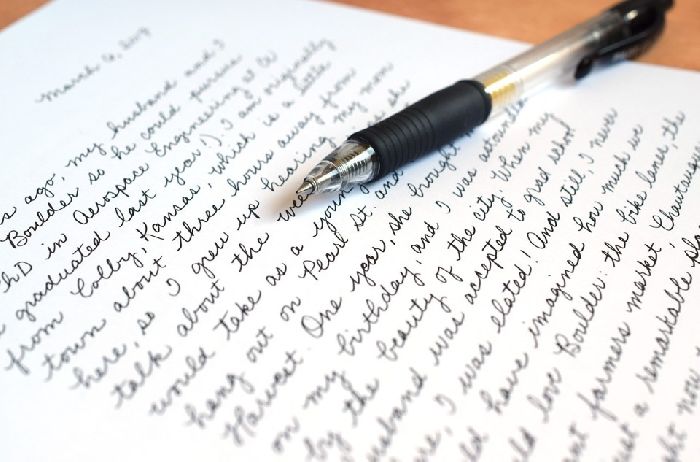 March 6, 2019
ago, my husband and I
Boulder so he could pursue
PhD in Aerospace Engineering at CU
graduated last year!). I am originally
from Colby, Kansas, which is a little
town about three hours away from
here, so I grew up hearing my mom
talk about the
would take as a young
hang out on Pearl St. and
Harvest. One year, she brought
on my birthday, and I was astounded
by the beauty of the city. When my
husband was accepted to grad school
I was elated! And still, I never
have imagined how much we
love Boulder: the bike lanes, the
farmers market, Chautauqua
just a remarkable